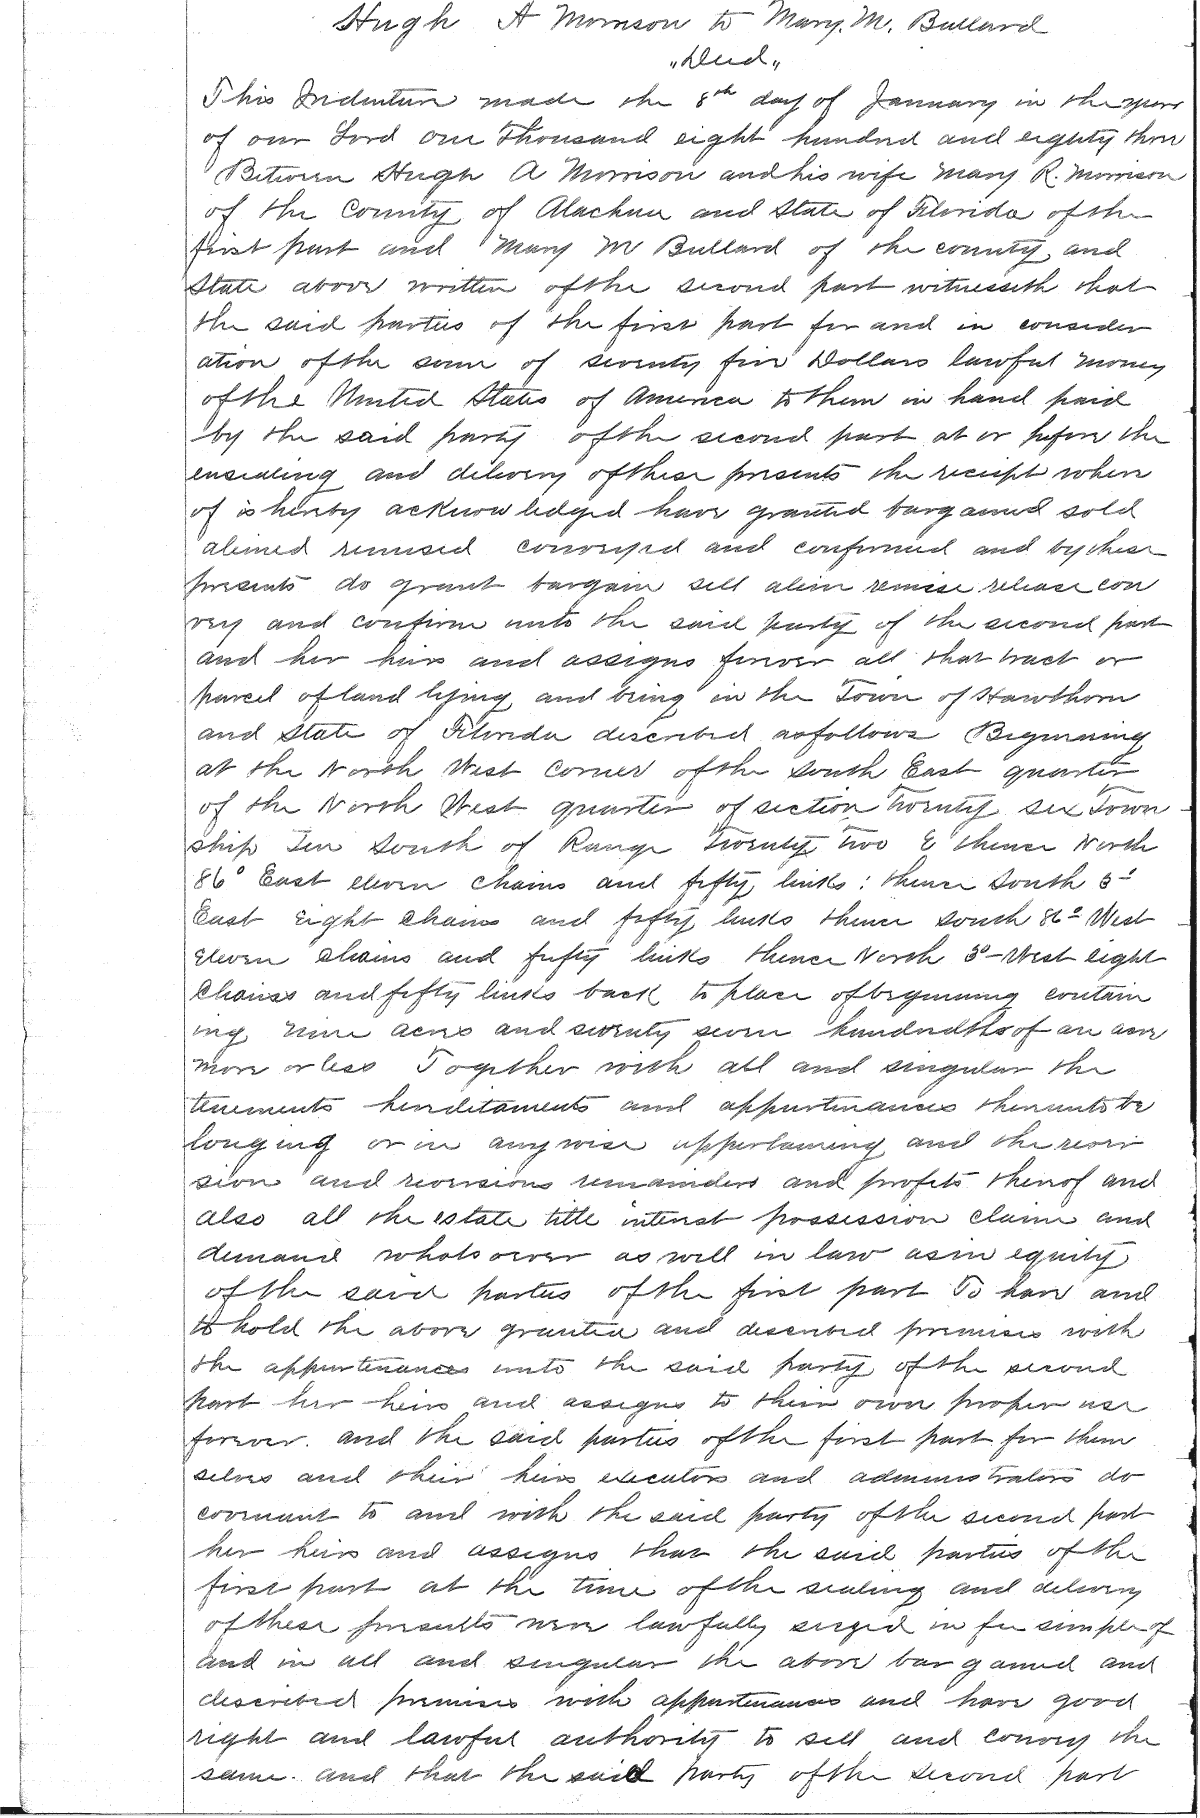 Hugh A Morrison to Mary. M. Bullard
"Deed"
This Indenture made the 8th day of January in the year
of our Lord One Thousand eight hundred and eighty three
Between Hugh A Morrison and his wife Mary R. Morrison
of the County of Alachua and State of Florida of the
first part and Mary M Bullard of the county and
State above written of the second part witnesseth that
the said parties of the first part for and in consider
ation of the sum of seventy five Dollars lawful money
of the United States of America to them in hand paid
by the said party of the second part at or before the
ensealing and delivery of these presents the receipt where
of is hereby acknowledged have granted bargained sold
aliened remised conveyed and confirmed and by these
presents do grant bargain sell alien remise release con
vey and confirm unto the said party of the second part
and her heirs and assigns forever all that tract or
parcel of land lying and being in the Town of Hawthorn
and State of Florida described as follows Beginning
at the North West corner of the South East quarter
of the North West quarter of section Twenty six Town
ship Ten South of Range Twenty Two E thence North
86° East eleven chains and fifty links: thence South 3°
East eight chains and fifty links thence South 86° West
eleven chains and fifty links thence North 3°-West eight
Chains and fifty links back to place of beginning contain
ing nine acres and seventy seven hundredths of an acre
more or less Together with all and singular the
tenements hereditaments and appurtenances thereunto be
longing or in anywise appertaining and the rever
sion and reversions remainders and profits thereof and
also all the estate title interest possession claim and
demand whatsoever as well in law as in equity
of the said parties of the first part To have and
to hold the above granted and described premises with
the appurtenances unto the said party of the second
part her heirs and assigns to their own proper use
forever. and the said parties of the first part for them
selves and their heirs executors and administrators do
covenant to and with the said party of the second part
her heirs and assigns that the said parties of the
first part at the time of the sealing and delivery
of these presents were lawfully seized in fee simple of
and in all and singular the above bargained and
described premises with appurtenances and have good
right and lawful authority to sell and convey the
same. and that the said party of the second part